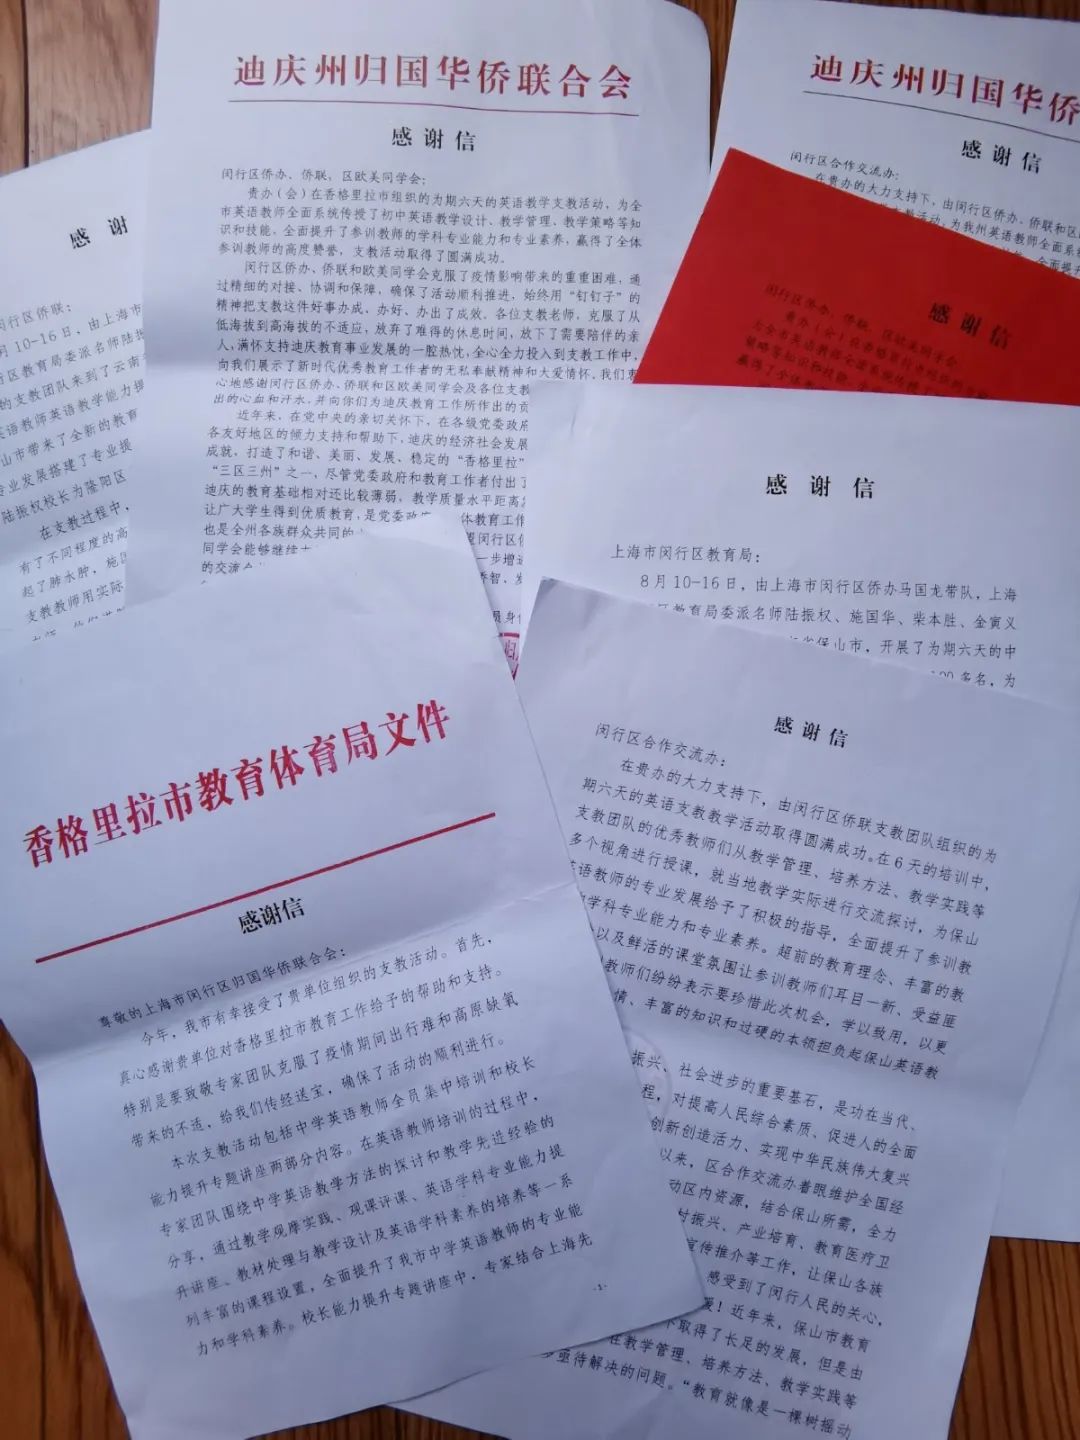 迪庆州归国华侨联合会
感谢信
闵行区侨办、侨联，区欧美同学会：
贵办（会）在香格里拉市组织的为期六天的英语教学支教活动，为全
市英语教师全面系统传授了初中英语教学设计、教学管理、教学策略等知
识和技能，全面提升了参训教师的学科专业能力和专业素养，赢得了全体
参训教师的高度赞誉，支教活动取得了圆满成功。
闵行区侨办、侨联和欧美同学会克服了疫情影响带来的重重困难，通
过精细的对接、协调和保障，确保了活动顺利推进，始终用“钉钉子”的
精神把支教这件好事办成、办好、办出了成效。各位支教老师，克服了从
低海拔到高海拔的不适应，放弃了难得的休息时间，放下了需要陪伴的亲
人，满怀支持迪庆教育事业发展的一腔热忱，全心全力投入到支教工作中，
向我们展示了新时代优秀教育工作者的无私奉献精神和大爱情怀，我们衷
心地感谢闵行区侨办、侨联和区欧美同学会及各位支教
出的心血和汗水，并向你们为迪庆教育工作所作出的贡
近年来，在党中央的亲切关怀下，在各级党委政府
各友好地区的倾力支持和帮助下，迪庆的经济社会发展
成就，打造了和谐、美丽、发展、稳定的“香格里拉”
“三区三州”之一，尽管党委政府和教育工作者付出了
迪庆的教育基础相对还比较薄弱，教学质量水平距离
让广大学生得到优质教育，是党委政 体教育工作
也是全州各族群众共同的 望闵行区侨
同学会能够继续 一步增进
的交流 香智、发
员身
迪庆州归国华侨
感谢信
闵行区合作交流办：
在贵办的大力支持下，由闵行区侨办、侨联和区
支教活动，为我州英语教师全面系
全面提
感谢信
闵行区侨办、侨联，区欧美同学会
贵办（会）在香格里拉市组织的
为全市英语教师全面系统传授
策略等知识和技能，全
赢得了全体
感谢
闵行区侨联：
月10-16日，由上海市
区教育局委派名师陆振
的支教团队来到了云南
英语教师英语教学能力提
山市带来了全新的教育
专业发展搭建了专业提
陆振权校长为隆阳区
在支教过程中，
有了不同程度的高
起了肺水肿，施国
支教教师用实际
感谢信
上海市闵行区教育局：
8月10-16日，由上海市闵行区侨办马国龙带队，上海
区教育局委派名师陆振权、施国华、柴本胜、金寅义
省保山市，开展了为期六天的中
100多名，为
香格里拉市教育体育局文件
感谢信
尊敬的上海市闵行区归国华侨联合会：
今年，我市有幸接受了贵单位组织的支教活动。首先，
真心感谢贵单位对香格里拉市教育工作给予的帮助和支持。
特别是要致敬专家团队克服了疫情期间出行难和高原缺氧
带来的不适，给我们传经送宝，确保了活动的顺利进行。
本次支教活动包括中学英语教师全员集中培训和校长
能力提升专题讲座两部分内容。在英语教师培训的过程中，
专家团队围绕中学英语教学方法的探讨和教学先进经验的
分享，通过教学观摩实践、观课评课、英语学科专业能力提
升讲座、教材处理与教学设计及英语学科素养的培养等一系
列丰富的课程设置，全面提升了我市中学英语教师的专业能
力和学科素养。校长能力提升专题讲座中，专家结合上海先
-1-
感谢信
闵行区合作交流办：
在贵办的大力支持下，由闵行区侨联支教团队组织的为
期六天的英语支教教学活动取得圆满成功。在6天的培训中，
支教团队的优秀教师们从教学管理、培养方法、教学实践等
多个视角进行授课，就当地教学实际进行交流探讨，为保山
英语教师的专业发展给予了积极的指导，全面提升了参训教
学科专业能力和专业素养。超前的教育理念、丰富的教
以及鲜活的课堂氛围让参训教师们耳目一新、受益匪
教师们纷纷表示要珍惜此次机会，学以致用，以更
情、丰富的知识和过硬的本领担负起保山英语教
振兴、社会进步的重要基石，是功在当代、
程，对提高人民综合素质、促进人的全面
创新创造活力、实现中华民族伟大复兴
以来，区合作交流办着眼维护全国经
动区内资源，结合保山所需，全力
村振兴、产业培育、教育医疗卫
宣传推介等工作，让保山各族
感受到了闵行人民的关心，
暖！近年来，保山市教育
取得了长足的发展，但是由
在教学管理、培养方法、教学实践等
亟待解决的问题。“教育就像是一棵树摇动